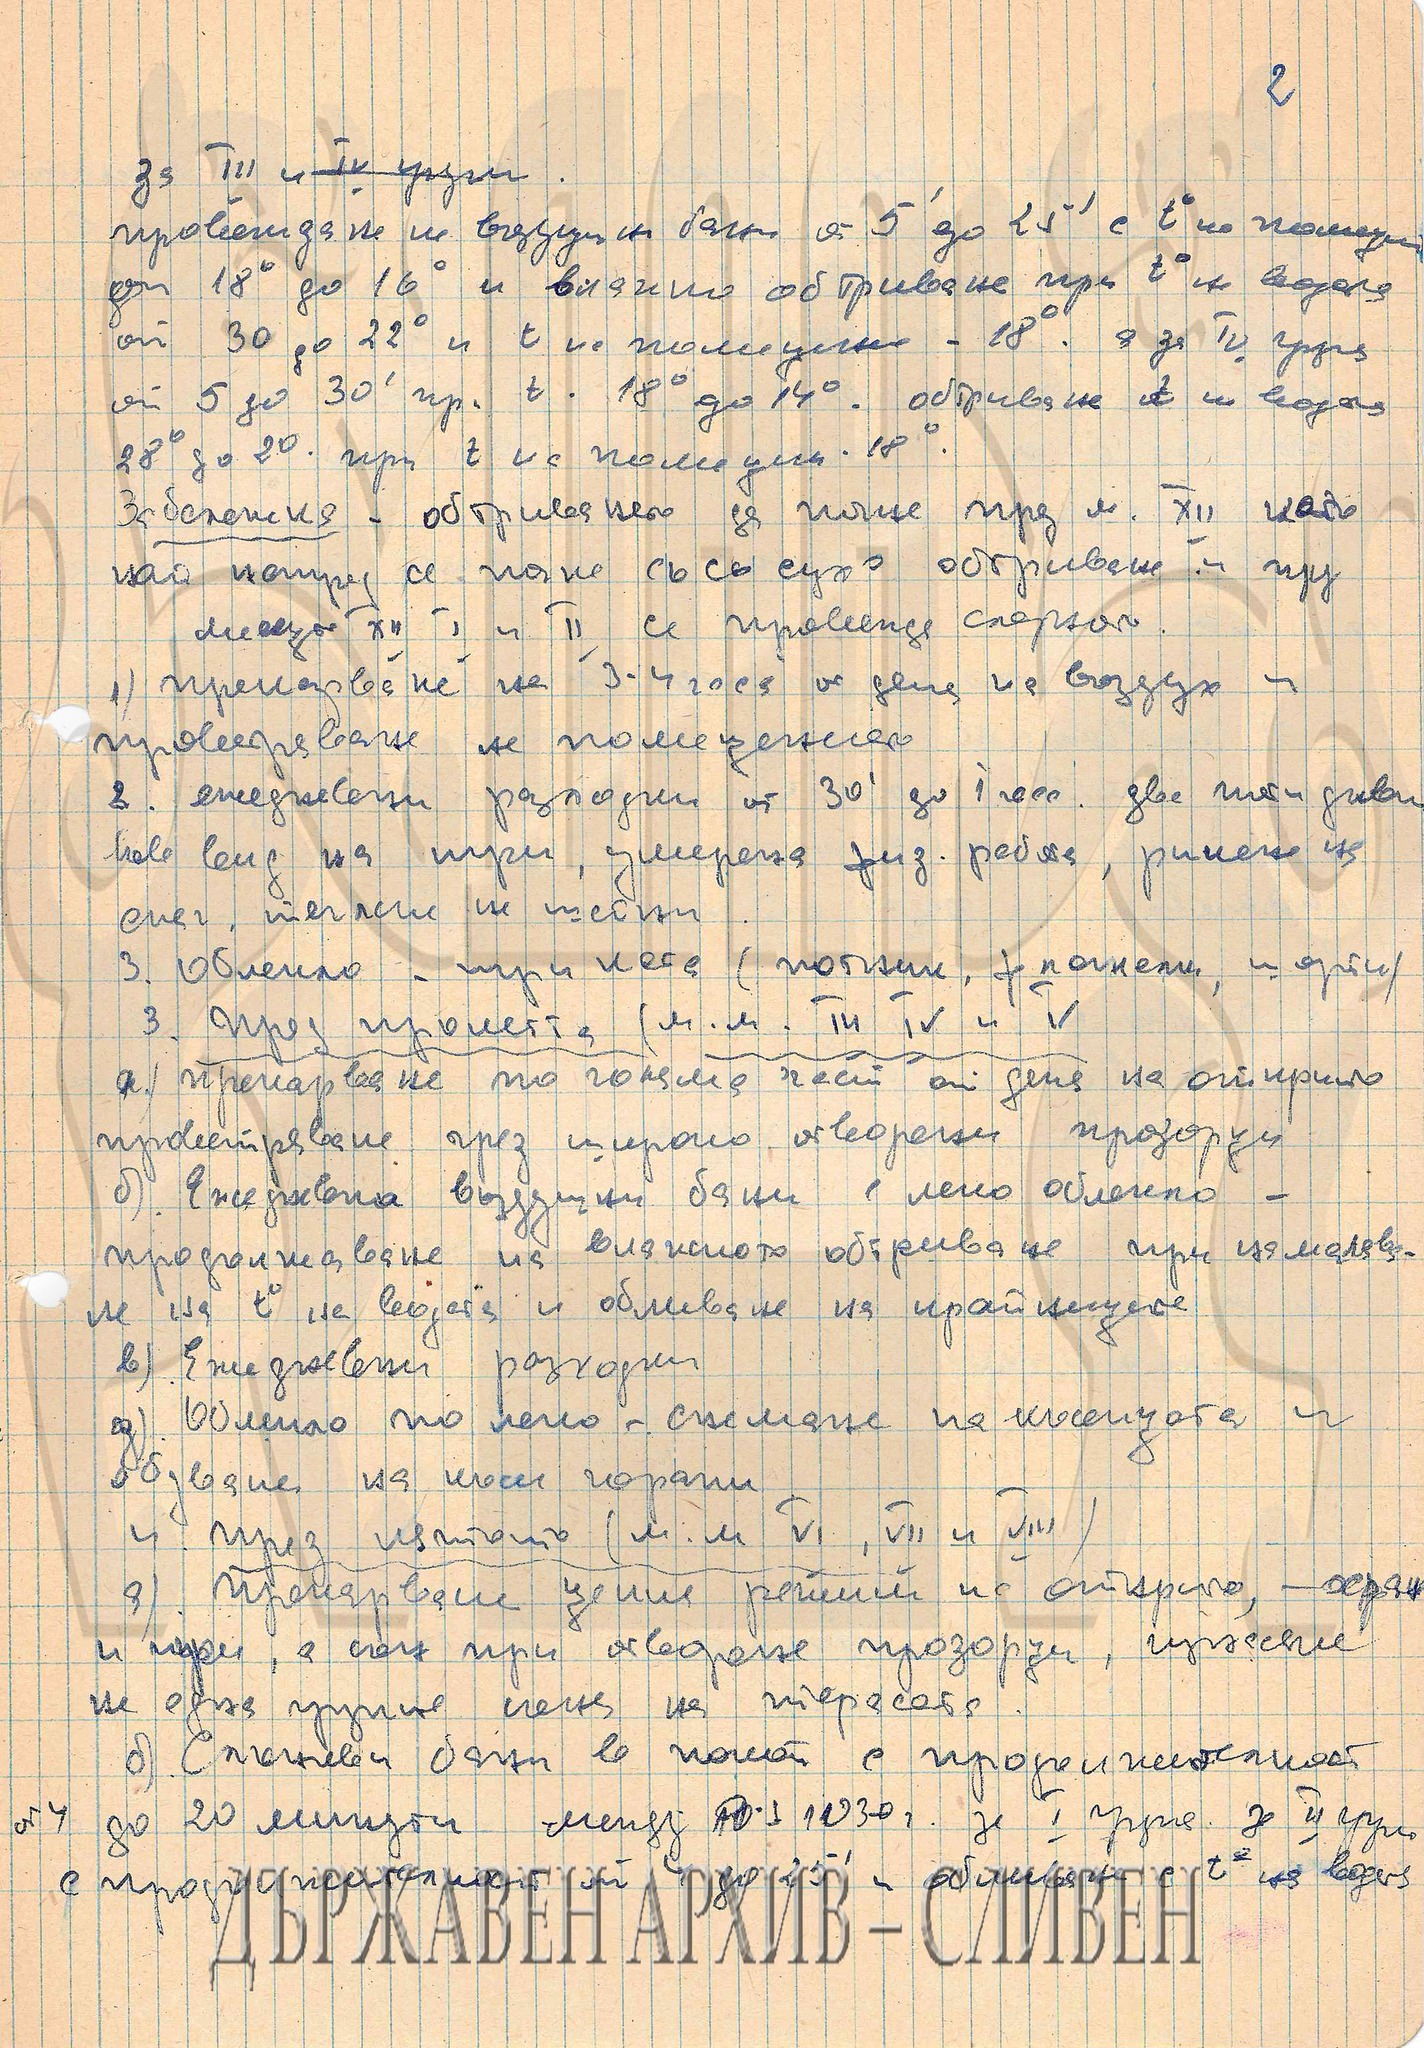 2
за III и IV групи.
провеждане на въздушни бани от 5' до 25' с t° на помещ.
при 18° до 16° и влажно обтриване при t° на водата
от 30 до 22° и t на помещение - 18°. а за IV група
от 5 до 30' при t. 18° до 14°. обтриване t на водата
28° до 20. при t на помещен. 18°.
Забележка - обтриването да почне през м. XII като
най напред се почне със сухо обтриване и през
месеците XII I и II се провежда следното.
1) прекарване на 3-4 часа от деня на въздух и
проветряване на помещението
2. ежедневни разходки от 30' до 1 час. две пъти дневно
във вид на игри, умерена физ. работа, ринене на
сняг, теглене на шейни.
3. Облекло - три ката (потник, панели,
3. През пролетта (м.м. III IV и V
а.) прекарване по голяма част от деня на открито
проветряване чрез широко отворени прозорци
б). Ежедневна въздушни бани с леко облекло -
продължаване на влажното обтриване при намалява-
не на t° на водата и обливане на крайниците
в). Ежедневни разходки
д). Облекло по леко - снемане на
обуване на къси чорапи
4. през лятото (м.м VI, VII и VIII)
а). Прекарване целия режим на открито, - хран
и игри, а сън при отворени прозорци, изнасяне
на една група легла на терасата.
б). Слънчеви бани в покой с продължителност
от 4 до 20 минути между 10 и 1030 ч. за I група. за II група
с продължителност от 4 до 25' и обливане с t° на водата
ДЪРЖАВЕН АРХИВ – СЛИВЕН